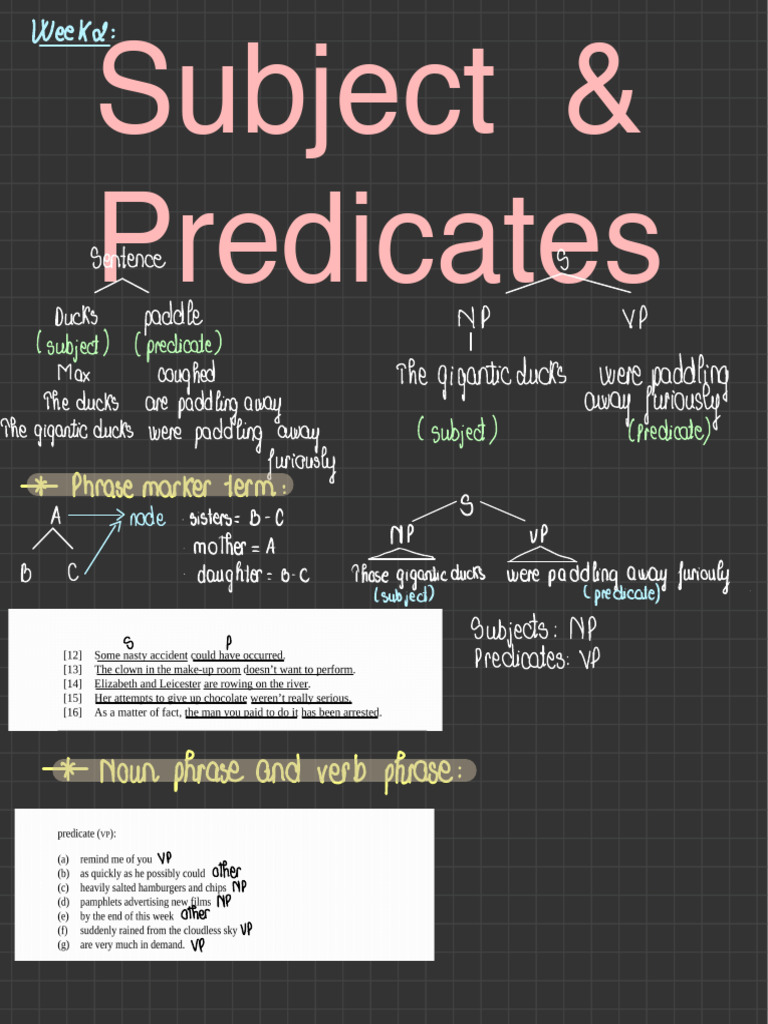 Week 2:
Subject &
Predicates
Sentence
Ducks paddle
(subject) (predicate)
Max coughed
The ducks are paddling away
The gigantic ducks were paddling away
furiously
S
NP VP
The gigantic ducks were paddling
away furiously
(subject) (predicate)
* Phrase marker term:
A node
B C
sisters = B - C
mother = A
daughter = B - C
S
NP VP
Those gigantic ducks were paddling away furiouly
(subject) (predicate)
Subjects: NP
Predicates: VP
S P
[12] Some nasty accident could have occurred.
[13] The clown in the make-up room doesn't want to perform.
[14] Elizabeth and Leicester are rowing on the river.
[15] Her attempts to give up chocolate weren't really serious.
[16] As a matter of fact, the man you paid to do it has been arrested.
* Noun phrase and verb phrase:
predicate (VP):
(a) remind me of you VP
(b) as quickly as he possibly could other
(c) heavily salted hamburgers and chips NP
(d) pamphlets advertising new films NP
(e) by the end of this week other
(f) suddenly rained from the cloudless sky VP
(g) are very much in demand. VP